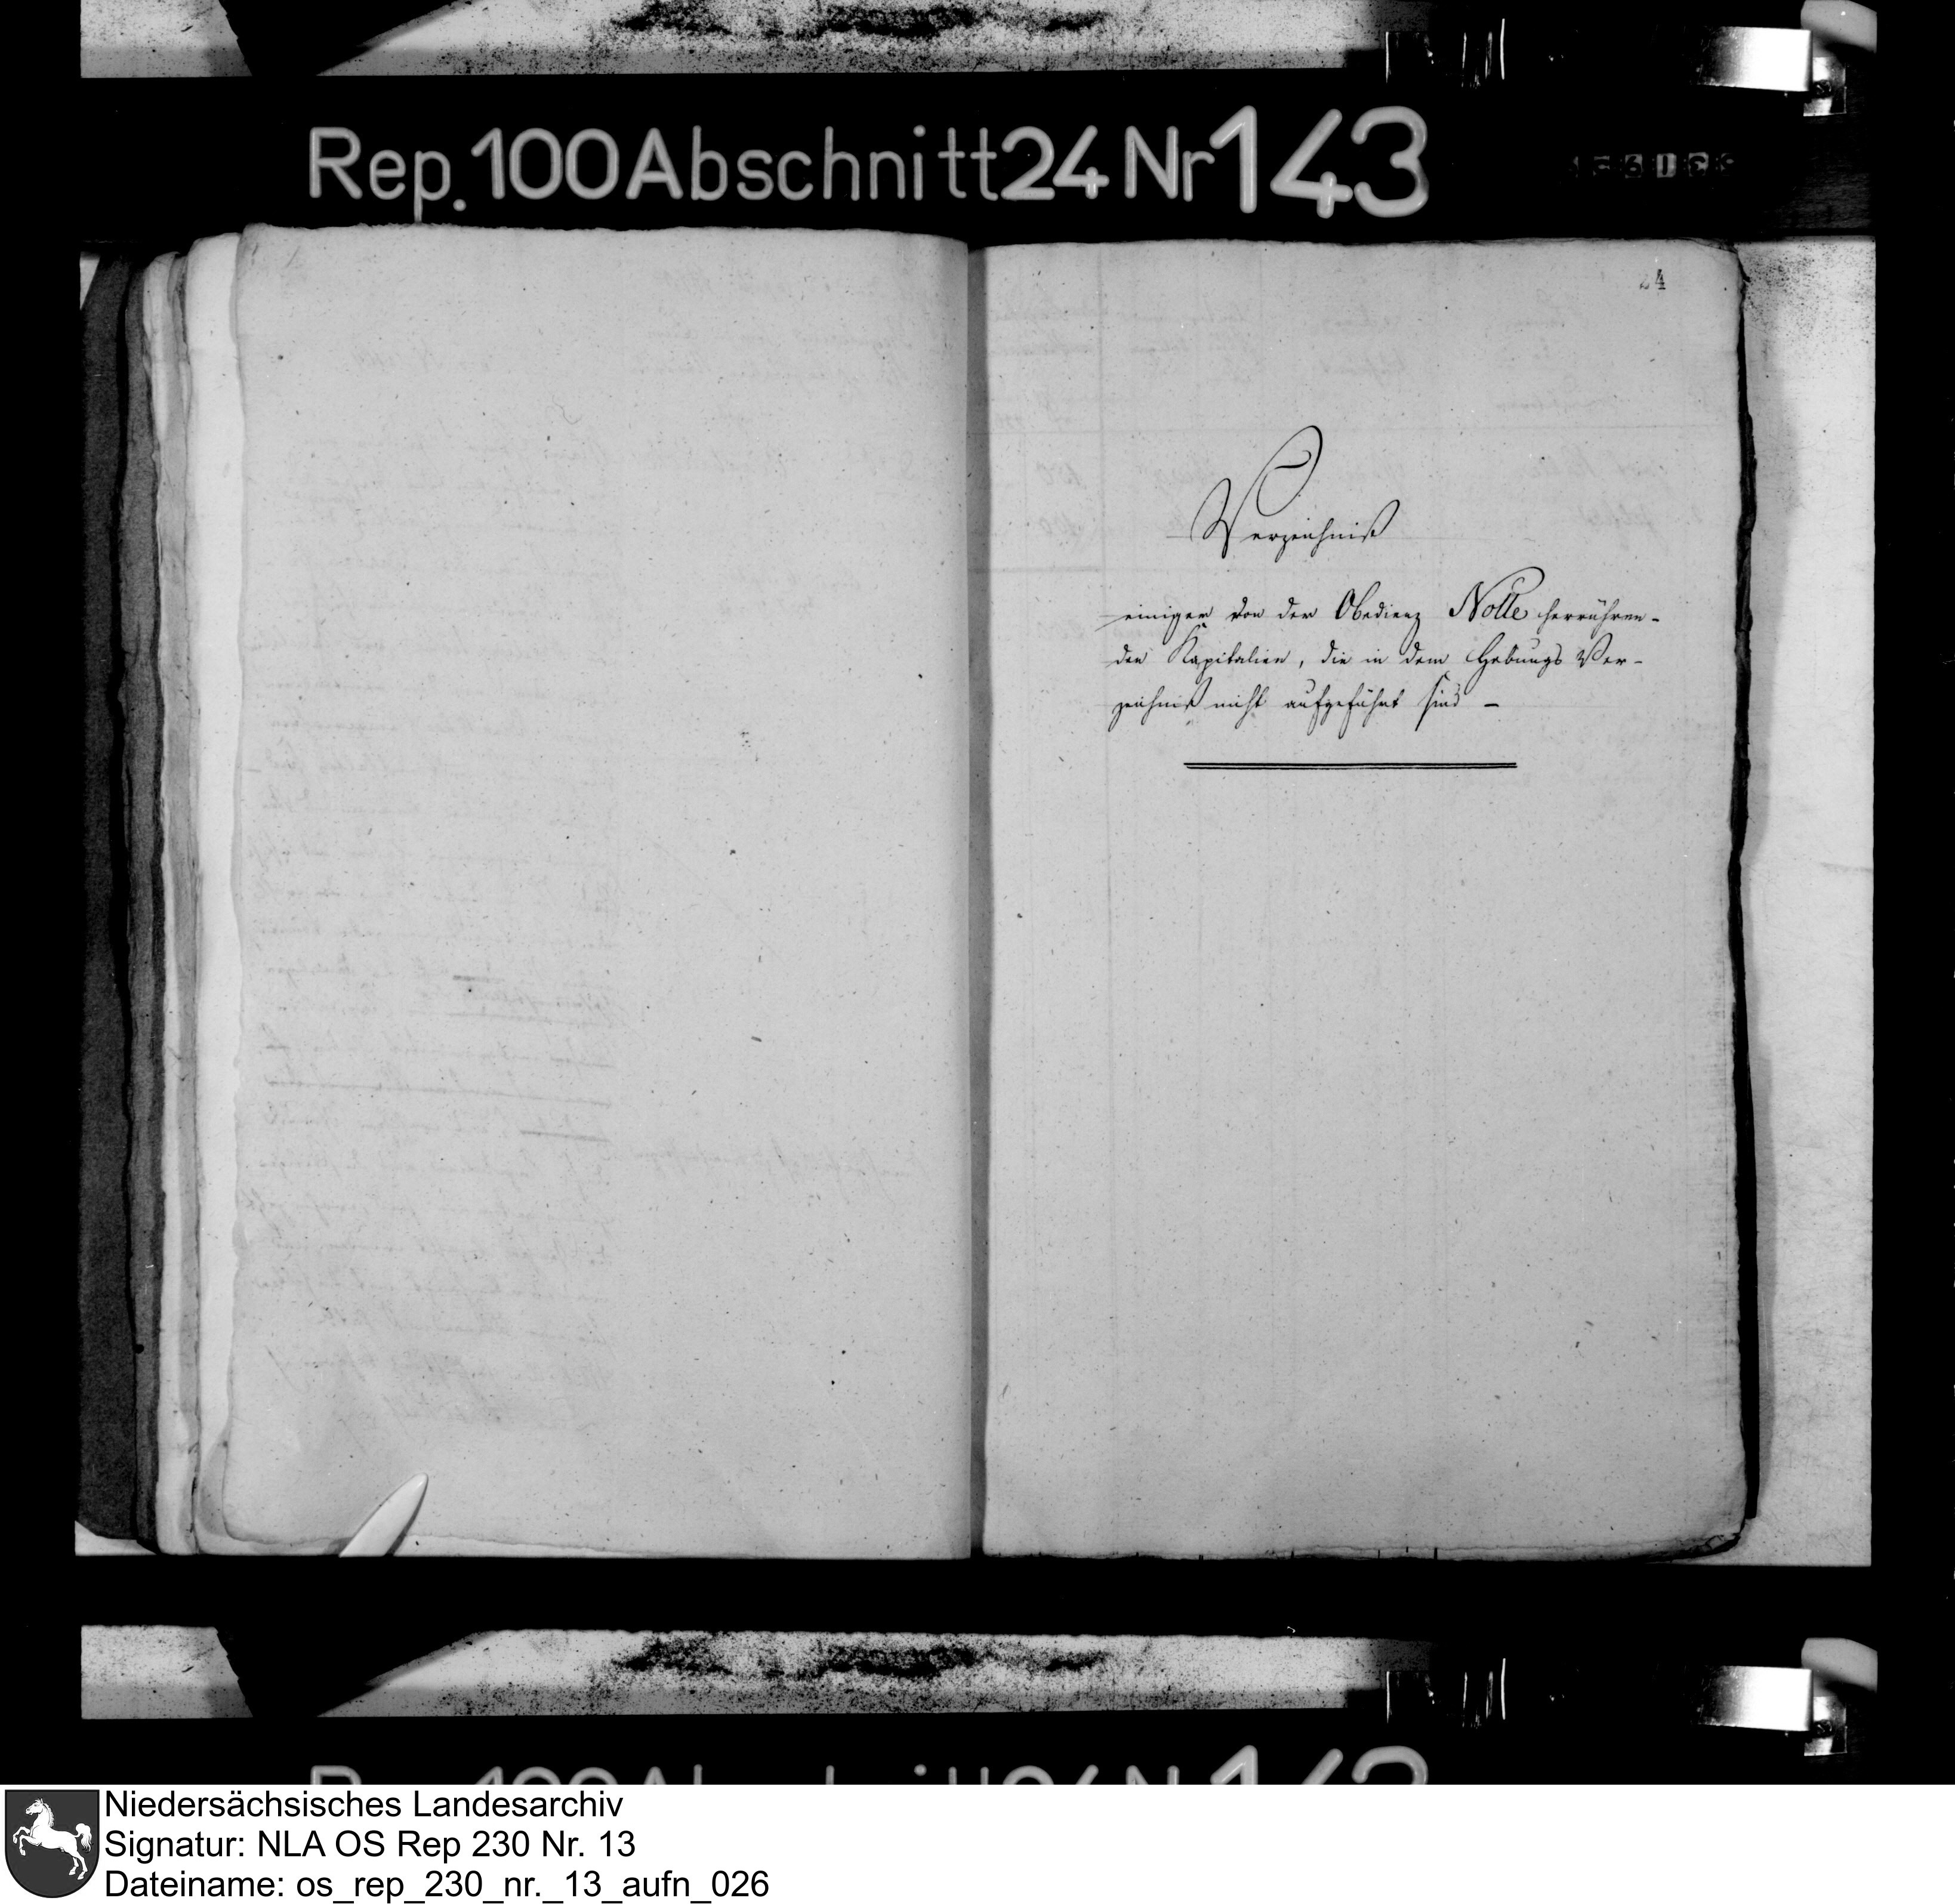 Rep. 100 Abschnitt 24 Nr 143
24
Verzeichniß
einiger von der Obedienz Nolle herrühren-
den Kapitalien, die in dem Hebungs Ver-
zeichniß nicht aufgeführt sind -
Niedersächsisches Landesarchiv
Signatur: NLA OS Rep 230 Nr. 13
Dateiname: os_rep_230_nr._13_aufn_026